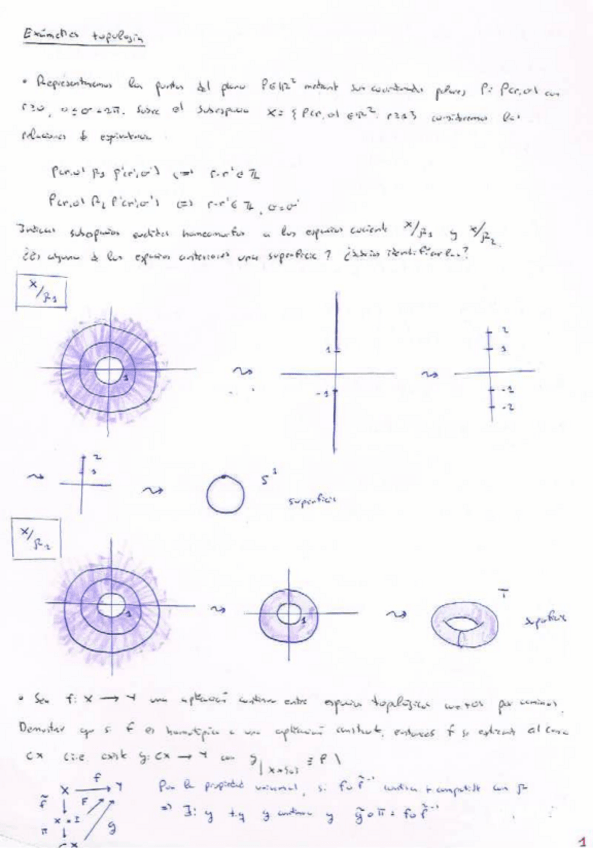 Exámenes topología
• Representamos los puntos del plano P∈ℝ² mediante sus coordenadas polares P = P(r,σ) con
r≥0, 0≤σ<2π. Sobre el subespacio X = {P(r,σ) ∈ℝ² : r≥1} consideremos las
relaciones de equivalencia
P(r,σ) R₁ P'(r',σ') ⟺ r-r' ∈ ℤ
P(r,σ) R₂ P'(r',σ') ⟺ r-r' ∈ ℤ, σ=σ'
Indicar subespacios euclídeos homeomorfos a los espacios cociente X/R₁ y X/R₂
¿Es alguno de los espacios anteriores una superficie? ¿Sabrías identificarla?
X/R₁
1
1
-1
2
1
-1
-2
2
1
S¹
superficie
X/R₂
1
1
T
superficie
• Sea f: X → Y una aplicación continua entre espacios topológicos por caminos.
Demostrar que si f es homotópica a una aplicación constante, entonces f se extiende al cono
CX (i.e. existe g: CX → Y con g|
X f Y
Por la propiedad universal, si continua + compatible con
F
X × I
π
g
CX
⇒ ∃! g t.q. g continua y
1